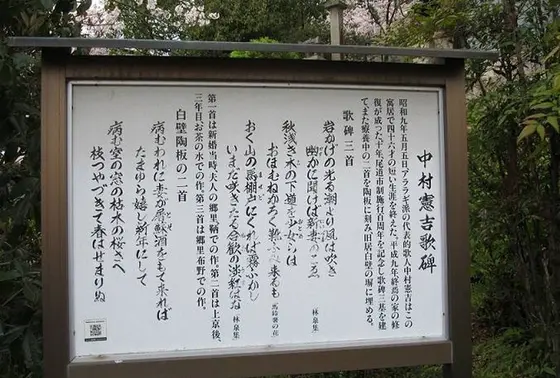 中村憲吉歌碑
昭和九年五月五日、アララギ派の代表的歌人中村憲吉はこの
寓居で四十六才の短い生涯を終えた。平成九年終焉の家の修
復が成った。十年尾道市制施行百周年を記念し歌碑三基を建
て、また療養中の二首を陶板に刻み旧居白壁の塀に埋める。
歌碑三首
岩かげの光る潮より風は吹き
幽かに聞けば新妻のこゑ
林泉集
秋浅き木の下道を少女らは
おほむねかろく靴ふみ来るも
馬鈴薯の花
おく山の馬棚戸にくれば霧ふかし
ませど
いまだ咲きたる合歓の淡紅はな
林泉集
第一首は新婚当時、夫人の郷里、鞆での作。第二首は上京後、
三年目、お茶の水での作。第三首は郷里布野での作。
白壁陶板の二首
病むわれに妻が屠蘇酒をもて来れば
とそ
たまゆら嬉し新年にして
病む室の窓の枯木の桜さへ
枝つやづきて春はせまりぬ